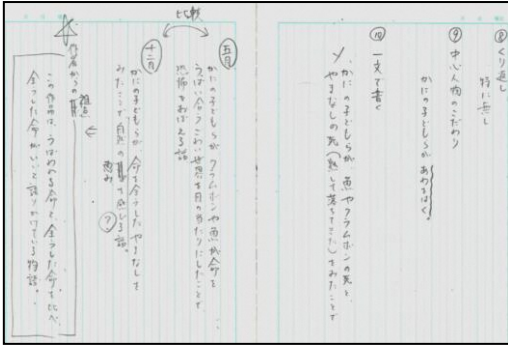 ⑧くり返し
特に無し
⑨中心人物のこだわり
かにの子どもらが、あわをはく。
⑩一文で書く
かにの子どもらが、魚やクラムボンの死と、
やまなしの死(熟して落ちてきた)をみたことで
比較
五月
かにの子どもらが、クラムボンや魚が命を
うばい合うこわい世界を目の当たりにしたことで
恐怖をおぼえる話
十二月
かにの子どもらが、命を全うしたやまなしを
みたことで自然の
恵み
を感じる話。
?
作者からの
視点
この作品は、うばわれる命と、全うした命を比べ、
全うした命がいいと語りかけている物語。